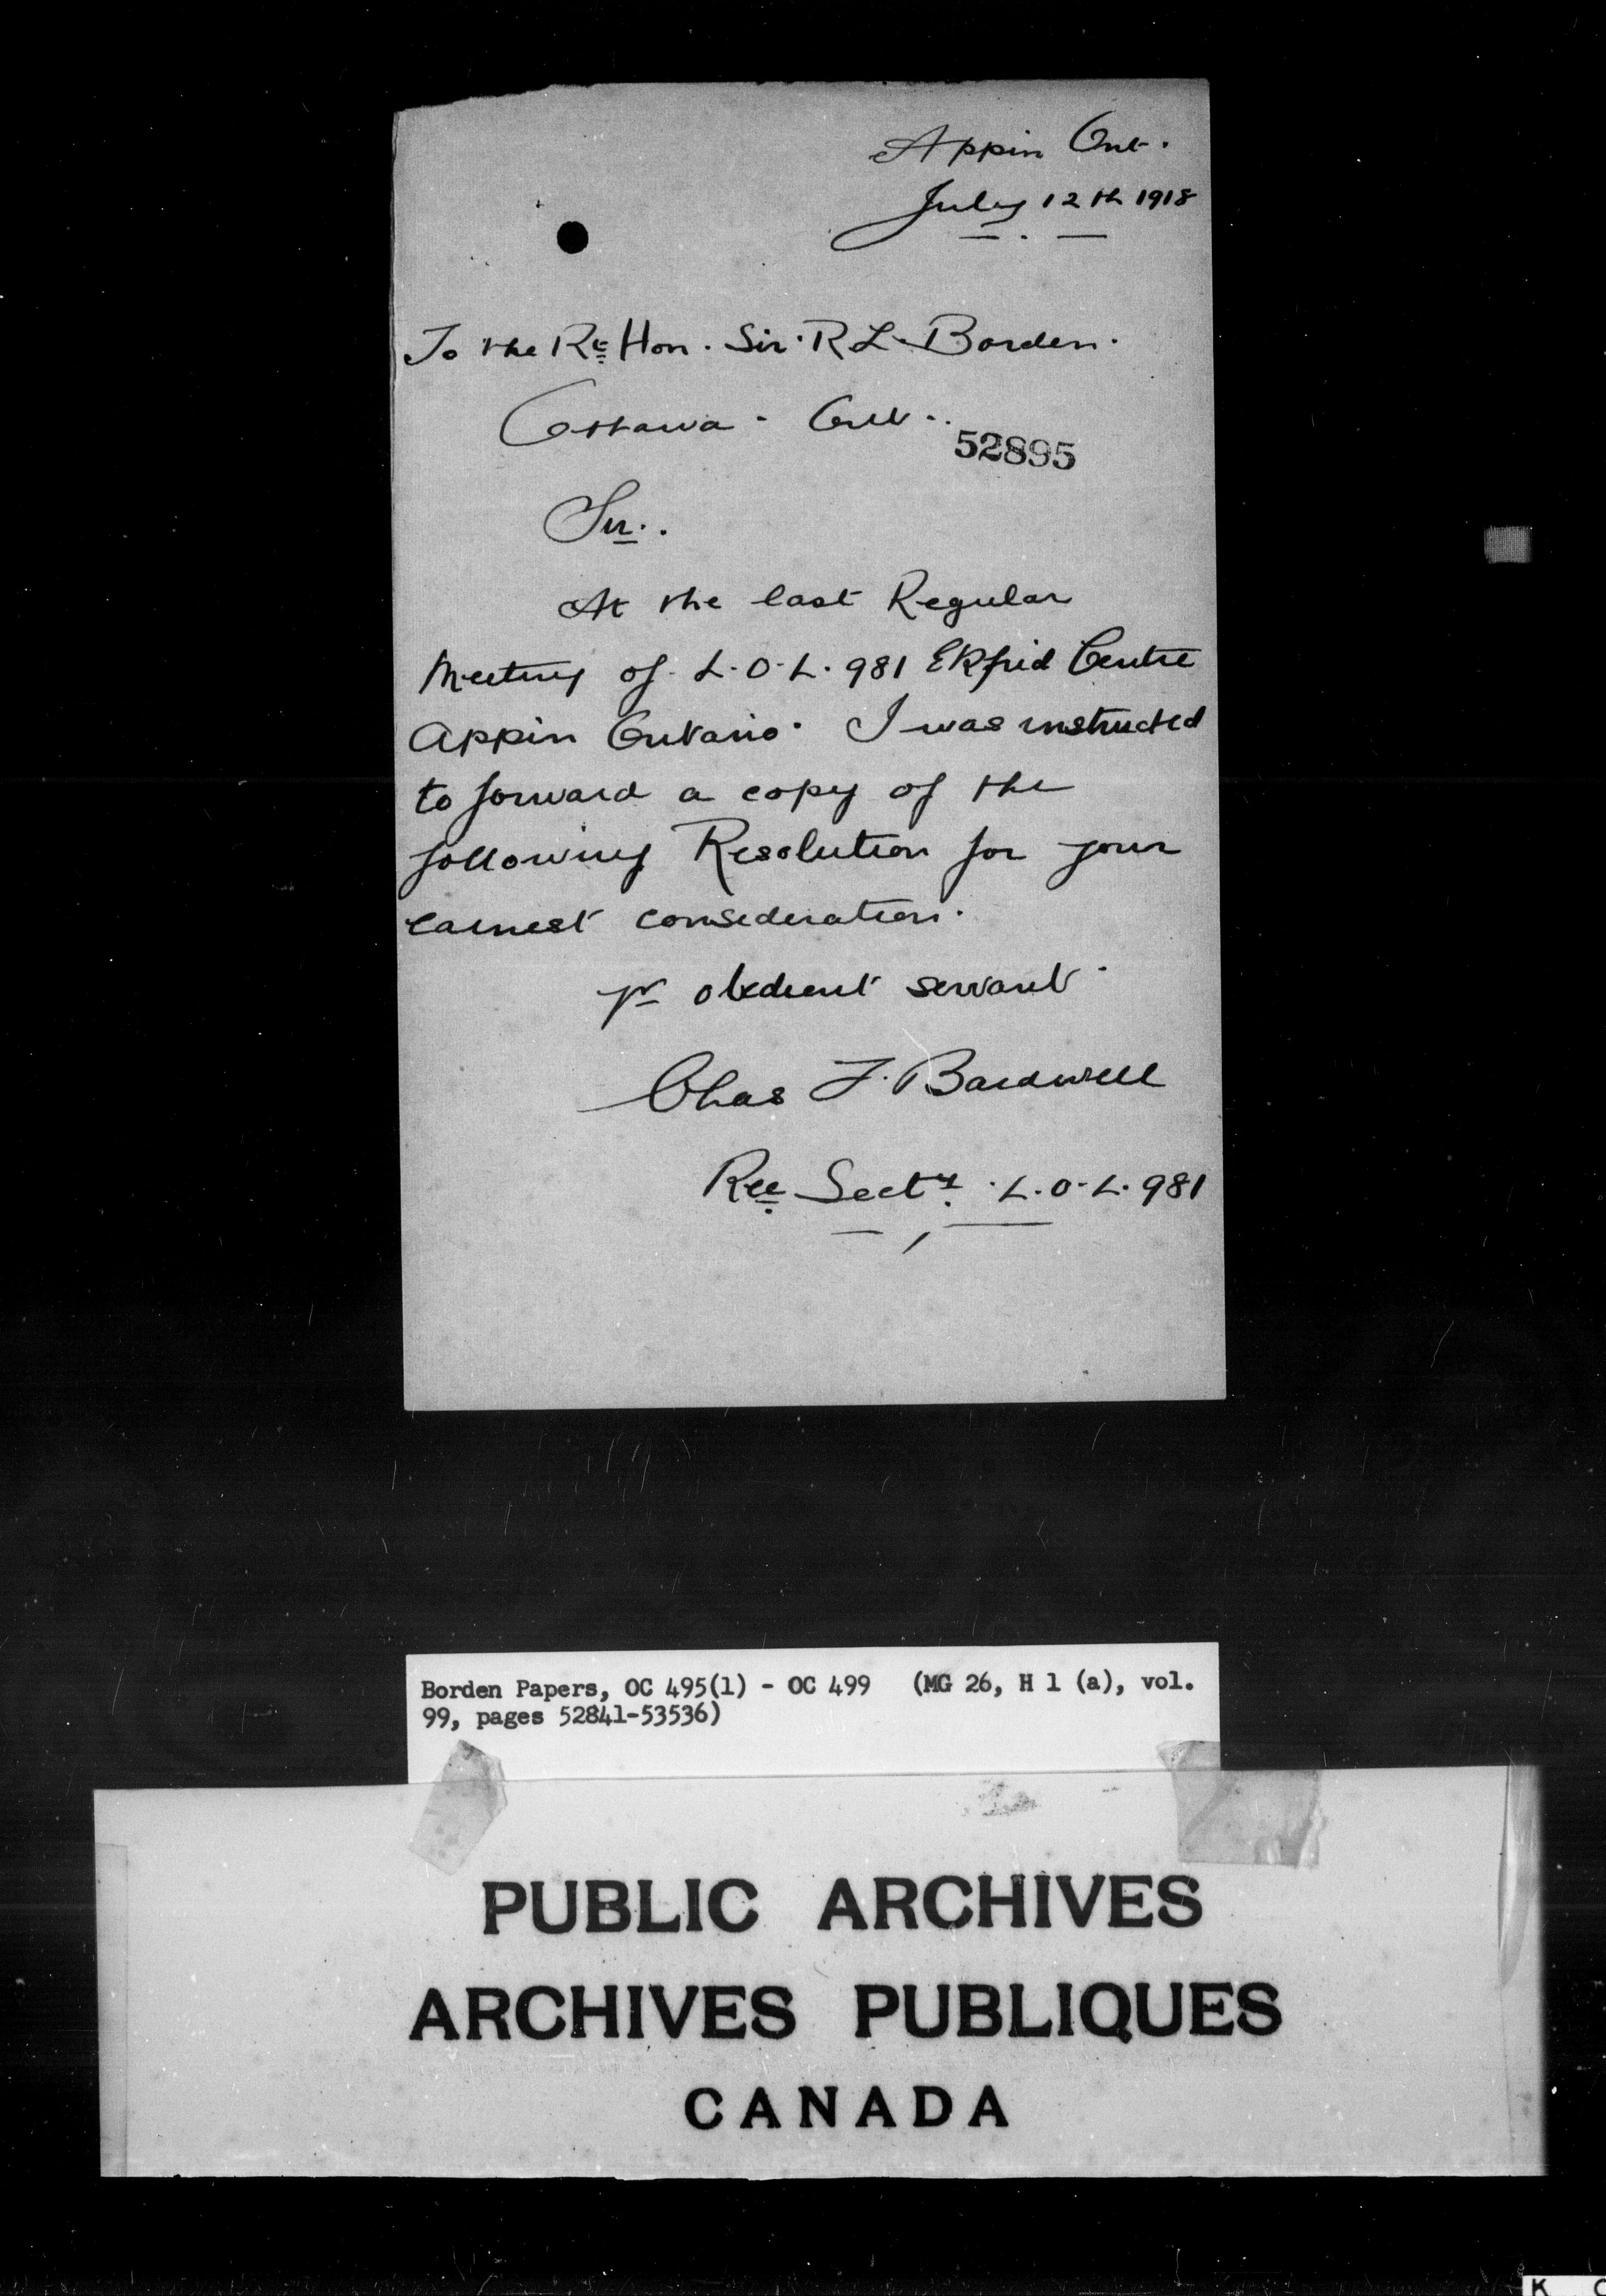 Appin Ont.
July 12th 1918
To the Rt Hon. Sir. R L. Borden.
Ottawa. Ont.
52895
Sir.
At the last Regular
Meeting of L.O.L. 981 Ekfrid Centre
Appin Ontario. I was instructed
to forward a copy of the
following Resolution for your
earnest consideration.
yr obedient servant
Chas F. Bardwell
Rec Secty. L.O.L. 981
Borden Papers, OC 495(1) - OC 499 (MG 26, H 1 (a), vol.
99, pages 52841-53536)
PUBLIC ARCHIVES
ARCHIVES PUBLIQUES
CANADA
K